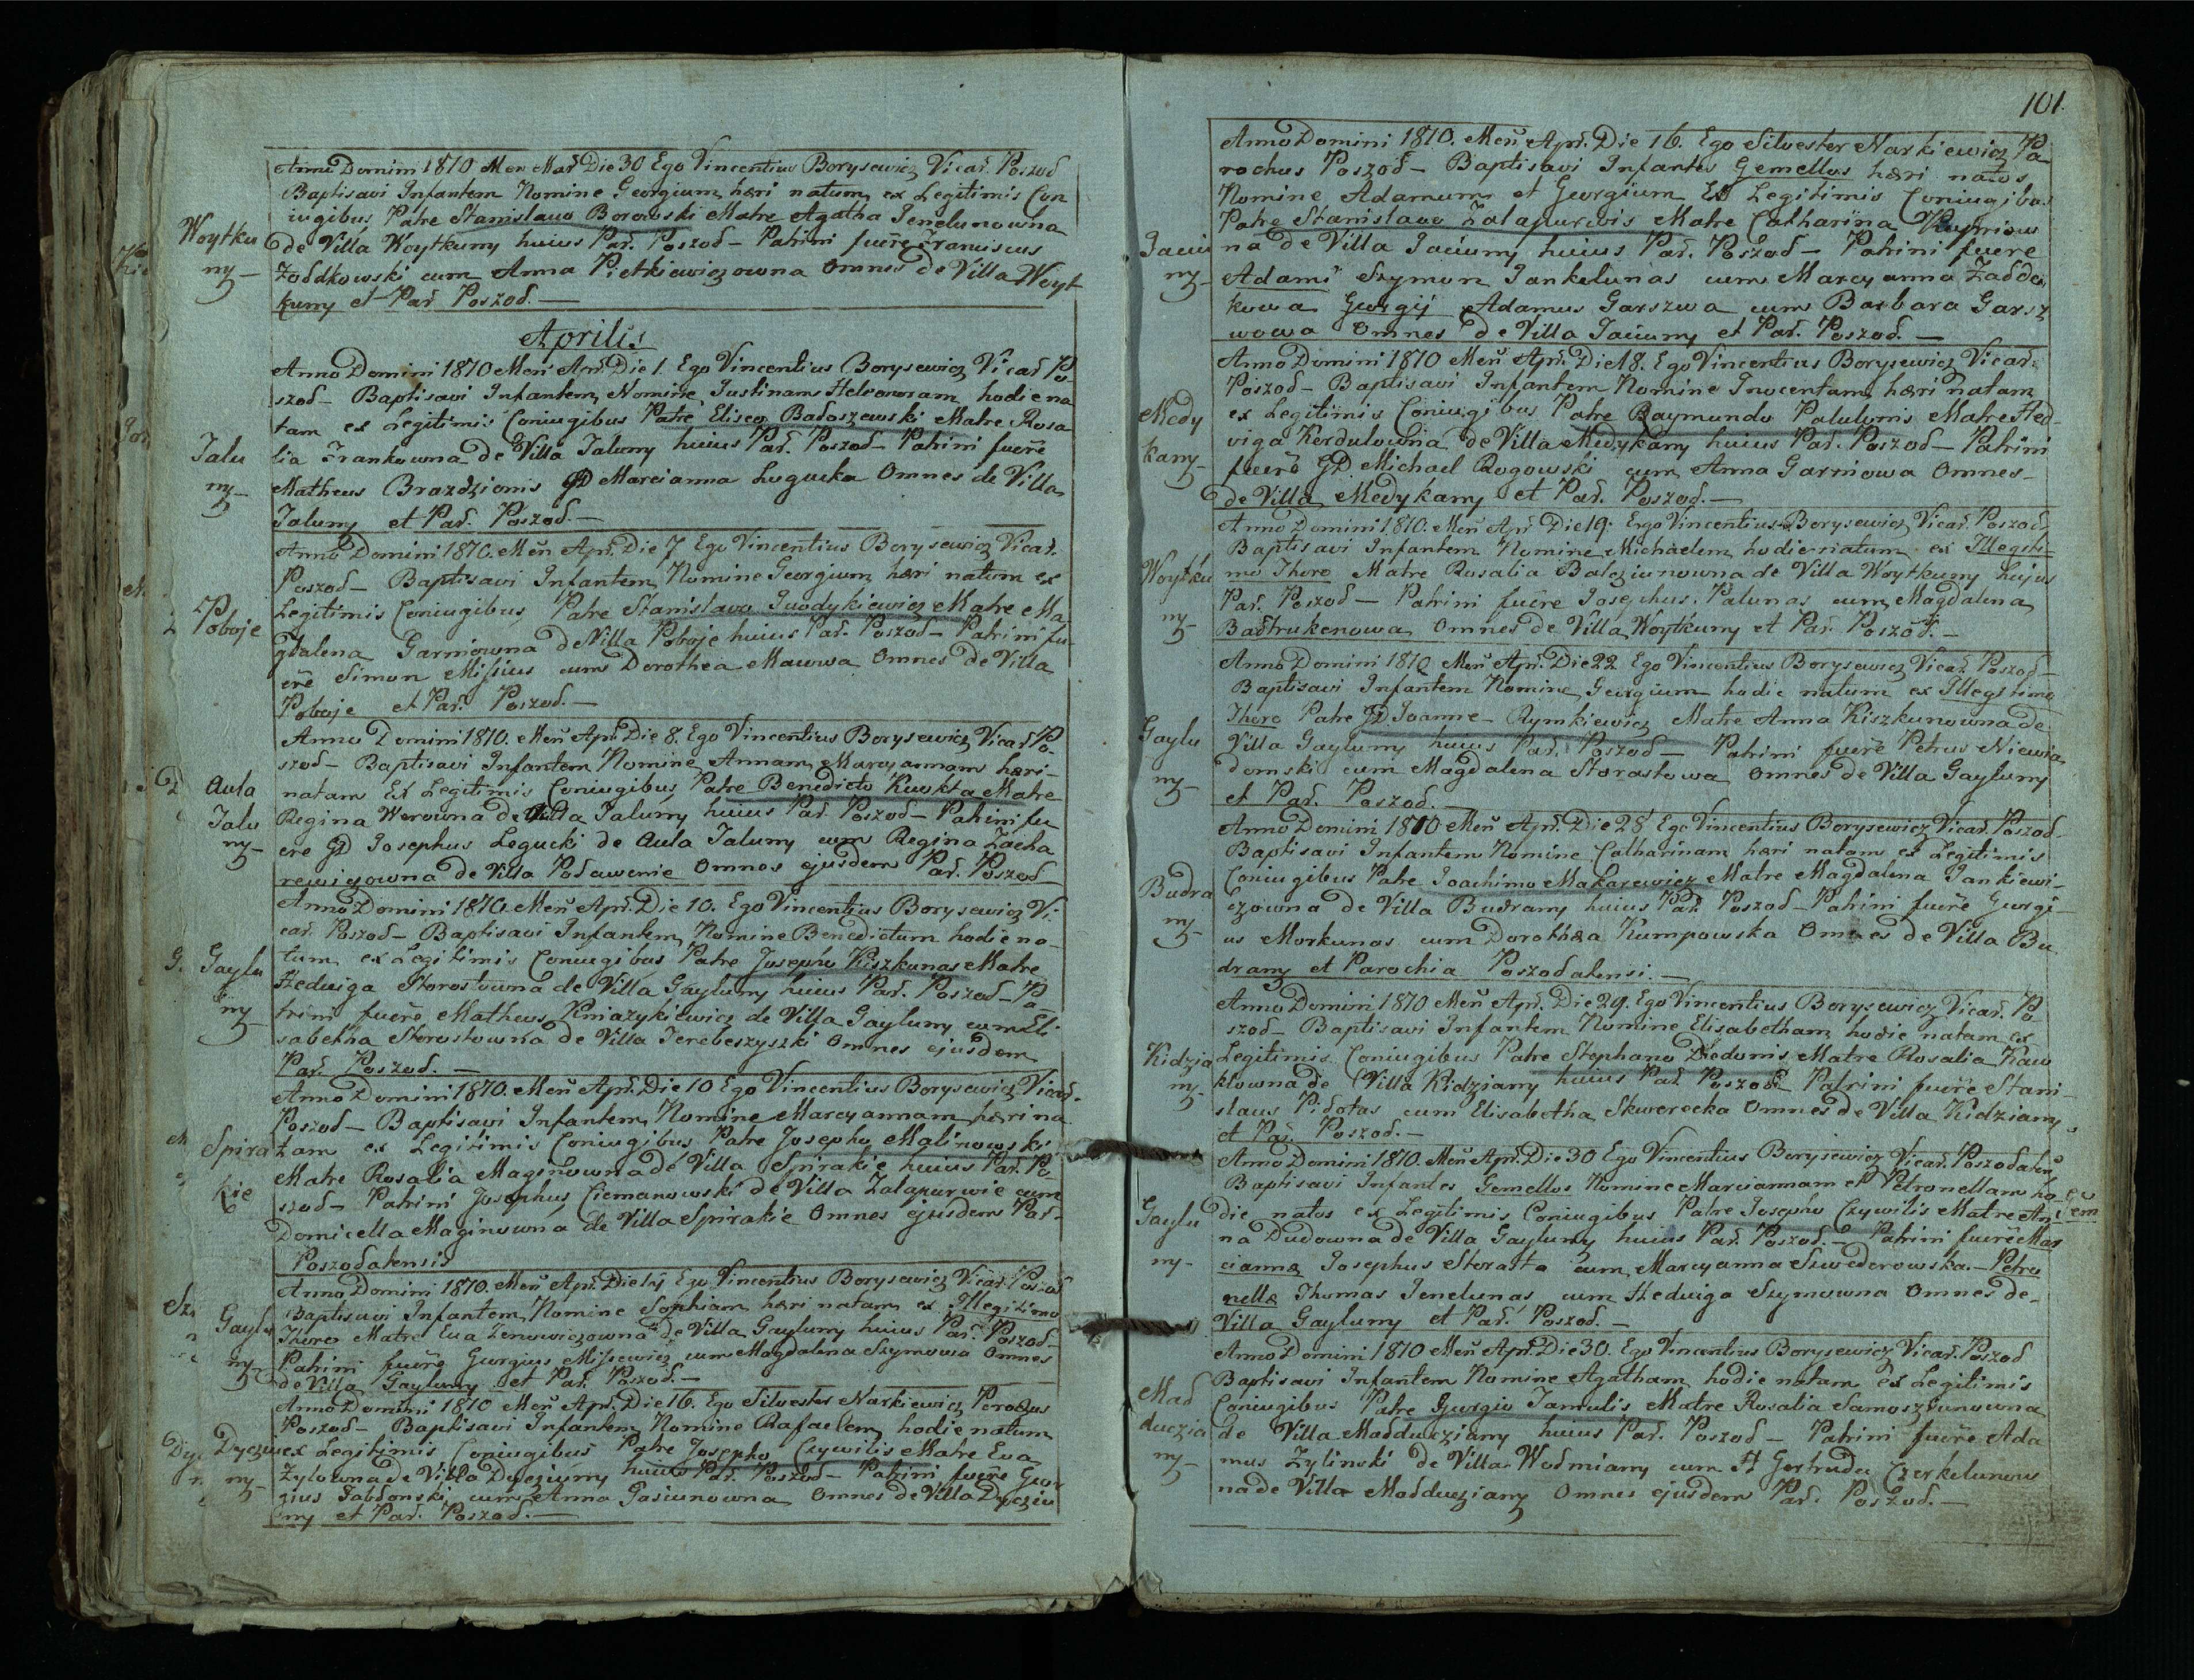 Anno Domini 1810 Men Mar̃ Die 30 Ego Vincentius Borysewicz Vicar̃. Poszod
Baptisavi Infantem Nomine Georgium hæri natum ex Legitimis Con
iugibus Patre Stanislavo Borowski Matre Agatha Jenelunowna
Woytku de Villa Woytkuny huius Par̃. Poszod – Patrini fuere Franciscus
ny – Żoldkowski cum Anna Pietkiewiczowna Omnes de Villa Woyt
kuny et Par̃ Poszod. –
Aprilis
Anno Domini 1810 Meñ Apr̃ Die 1. Ego Vincentius Borysewicz Vicar̃ Po-
szod – Baptisavi Infantem Nomine Justinam Heleonoram hodie na
tam ex Legitimis Coniugibus Patre Eliseo Badoszewski Matre Rosa
Jalu lia Frankowna de Villa Jaluny huius Par̃. Poszod – Patrini fuere
ny – Matheus Brazdzionis GD Marcianna Lugucka Omnes de Villa
Jaluny et Par̃. Poszod. –
Anno Domini 1810. Meñ Apr̃. Die 7 Ego Vincentius Borysewicz Vicar̃.
Poszod – Baptisavi Infantem Nomine Georgium hæri natum ex
Poboje Legitimis Coniugibus Patre Stanislavo Jwodykiewicz Matre Ma
gdalena Garniowna de Villa Poboje huius Par̃. Poszod – Patrini fu-
ere Simon Missius cum Dorothea Mauwa Omnes de Villa
Poboje et Par̃. Poszod. –
Anno Domini 1810. Meñ Apr̃ Die 8. Ego Vincentius Borysewicz Vicar̃ Po-
szod – Baptisavi Infantem Nomine Annam Marcyannam hæri-
Aula natam Ex Legitimis Coniugibus Patre Benedicto Kuwkta Matre
Jalu Regina Werowna de Aula Jaluny huius Par̃. Poszod – Patrini fu
ny – ere GD Josephus Legucki de Aula Jaluny cum Regina Zacha
rewiczowna de Villa Podawenie Omnes ejusdem Par̃. Poszod
Anno Domini 1810. Meñ Apr̃. Die 10. Ego Vincentius Borysewicz Vi-
car̃. Poszod – Baptisavi Infantem Nomine Benedictum hodie na-
Gaylu tum ex Legitimis Coniugibus Patre Josepho Kiszkunas Matre
ny – Hedwiga Storostowna de Villa Gayluny huius Par̃. Poszod – Pa
trini fuere Matheus Kniazykiewicz de Villa Gayluny cum Eli-
sabetha Storostowna de Villa Jerebeszyszki Omnes ejusdem
Par̃. Poszod. –
Anno Domini 1810. Meñ Apr̃. Die 10 Ego Vincentius Borysewicz Vicar̃.
Poszod – Baptisavi Infantem Nomine Marcyannam hæri na
Spira tam ex Legitimis Coniugibus Patre Josepho Malinowski
kie Matre Rosalia Maginowna de Villa Spirakie huius Par̃. Po
szod – Patrini Josephus Ciemanowski de Villa Zalapurwie cum
Domicella Maginowna de Villa Spirakie Omnes ejusdem Par̃.
Poszodalensis
Anno Domini 1810. Meñ Apr̃. Die 14 Ego Vincentius Borysewicz Vicar̃. Poszod
Baptisavi Infantem Nomine Sophiam hæri natam ex Illegitimo
Gaylu Thoro Matre Eva Lenowiczowna de Villa Gayluny huius Par̃. Poszod –
ny – Patrini fuere Gurgius Missewicz cum Magdalena Szymowa Omnes
de Villa Gayluny et Par̃. Poszod. –
Anno Domini 1810 Meñ Apr̃. Die 16. Ego Silvester Narkiewicz Parochus
Poszod – Baptisavi Infantem Nomine Rafaelem hodie natum
Dyczu ex Legitimis Coniugibus Patre Josepho Czywilis Matre Eva
ny – Zylowna de Villa Dyczuny huius Par̃. Poszod – Patrini fuere Geor
gius Jablonski cum Anna Jasiunowna Omnes de Villa Dyczu
ny et Par̃. Poszod. –
101.
Anno Domini 1810. Meñ Apr̃. Die 16. Ego Silvester Narkiewicz Pa
rochus Poszod – Baptisavi Infantes Gemellos hæri natos
Nomine Adamum et Georgium Ex Legitimis Coniugibus
Patre Stanislavo Zalapurwis Matre Catharina
Jaciu na de Villa Jaciuny huius Par̃. Poszod – Patrini fuere
ny – Adami Szymon Jankelunas cum Marcyanna Zadda
kowa Georgij Adamus Garszwa cum Barbara Garsz
wowa Omnes de Villa Jaciuny et Par̃. Poszod. –
Anno Domini 1810 Meñ Apr̃. Die 18. Ego Vincentius Borysewicz Vicar̃.
Poszod – Baptisavi Infantem Nomine Inocentam hæri natam
Medy ex Legitimis Coniugibus Patre Raymundo Palulonis Matre Hed-
kany – viga Kerdulowna de Villa Medykany huius Par̃. Poszod – Patrini
fuere GD Michael Rogowski cum Anna Garniowa Omnes
de Villa Medykany et Par̃. Poszod. –
Anno Domini 1810. Meñ Apr̃ Die 19. Ergo Vincentius Borysewicz Vicar̃. Poszod
Baptisavi Infantem Nomine Michaelem hodie natum ex Illegiti-
Woytku mo Thoro Matre Rosalia Balcziunowna de Villa Woytkuny hujus
ny – Par̃. Poszod – Patrini fuere Josephus Palunas cum Magdalena
Badtrukenowa Omnes de Villa Woytkuny et Par̃. Poszod. –
Anno Domini 1810 Meñ Apr̃. Die 22 Ego Vincentius Borysewicz Vicar̃. Poszod –
Baptisavi Infantem Nomine Georgium hodie natum ex Illegitimo
Gaylu Thoro Patre GD. Joanne Rymkiewicz Matre Anna Kiszkunowna de
ny – Villa Gayluny huius Par̃. Poszod – Patrini fuere Petrus Niewia
domski cum Magdalena Storastowa Omnes de Villa Gayluny
et Par̃. Poszod. –
Anno Domini 1810 Meñ Apr̃. Die 28 Ego Vincentius Borysewicz Vicar̃. Poszod –
Baptisavi Infantem Nomine Catharinam hæri natam ex Legitimis
Budra Coniugibus Patre Joachimo Makarewicz Matre Magdalena Jankiewi-
ny – czowna de Villa Budrany huius Par̃. Poszod – Patrini fuere Georgi-
us Morkunas cum Dorothæa Kumpowska Omnes de Villa Bu
drany et Parochia Poszodalensi. –
Anno Domini 1810 Meñ Apr̃. Die 29. Ego Vincentius Borysewicz Vicar̃. Po
szod – Baptisavi Infantem Nomine Elisabetham hodie natam ex
Kidzia Legitimis Coniugibus Patre Stephano Diedonis Matre Rosalia Kaw
ny – klowna de Villa Kidziany huius Par̃. Poszod – Patrini fuere Stani-
slaus Pidotas cum Elisabetha Skwerecka Omnes de Villa Kidziany
et Par̃. Poszod. –
Anno Domini 1810. Meñ Apr̃. Die 30 Ego Vincentius Borysewicz Vicar̃. Poszodaleñ
Baptisavi Infantes Gemellos Nomine Marciannam et Petronellam ho
Gaylu die natos ex Legitimis Coniugibus Patre Josepho Czywilis Matre An
ny – na Dudowna de Villa Gayluny huius Par̃. Poszod. – Patrini fuere Mar
ciannæ Josephus Storasta cum Marcyanna Szwederowska – Petro
nellæ Thomas Jenelunas cum Hedwiga Szymowna Omnes de
Villa Gayluny et Par̃. Poszod. –
Anno Domini 1810 Meñ Apr̃. Die 30. Ego Vincentius Borysewicz Vicar̃. Poszod
Mad Baptisavi Infantem Nomine Agatham hodie natam ex Legitimis
duczia Coniugibus Patre Gurgio Jamulis Matre Rosalia Samoszunowna
ny – de Villa Madducziany huius Par̃. Poszod – Patrini fuere Ada
mus Zylinski de Villa Wodmiany cum Gertruda Czerkelunow
na de Villa Madducziany Omnes ejusdem Par̃. Poszod. –